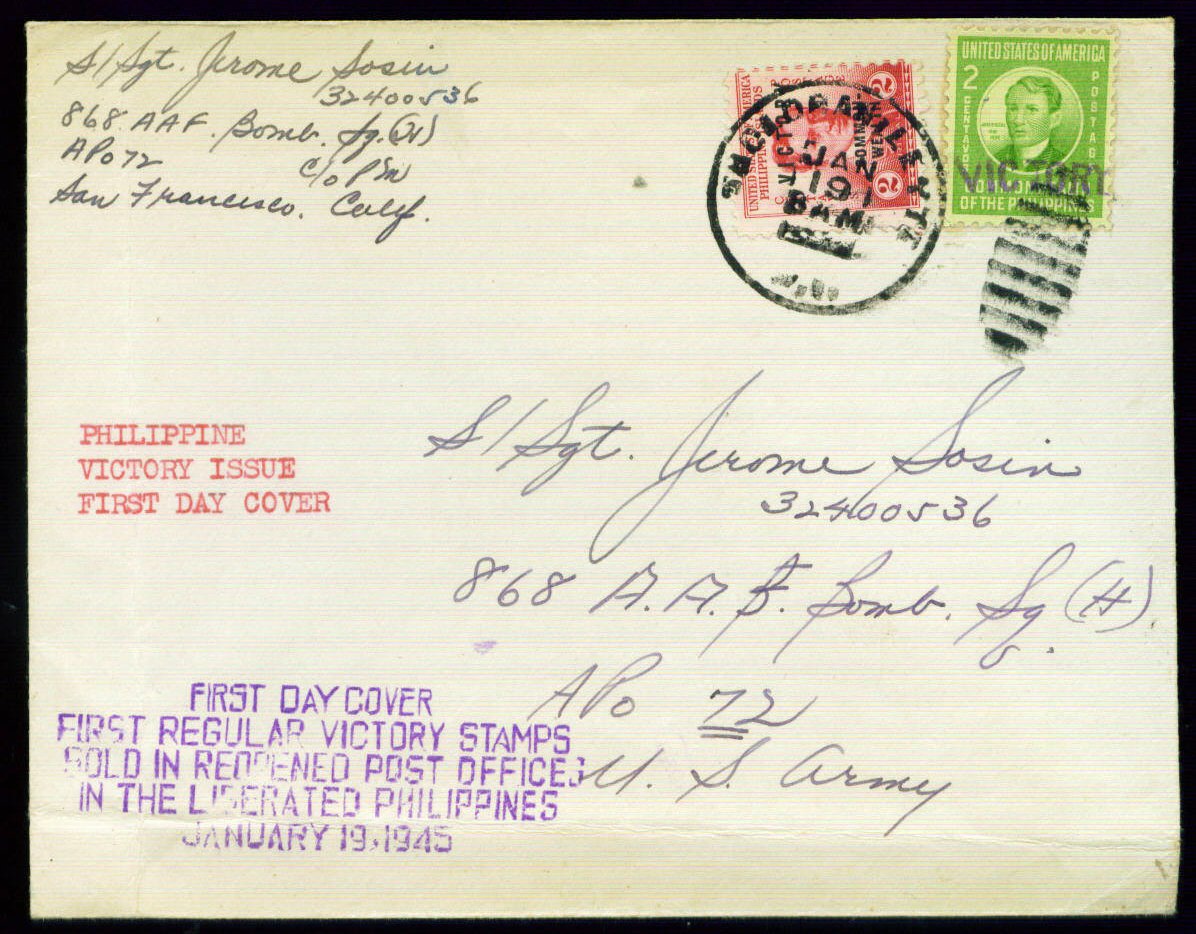 S/Sgt. Jerome Sosin
32400536
868 AAF. Bomb. Sq. (H)
APO 72
c/o PM
San Francisco. Calif.
UNITED STATES OF AMERICA
PHILIPPINE
2
2
VICTORY
TACLOBAN, LEYTE
JAN
19
8 AM
UNITED STATES OF AMERICA
2
CENTAVOS
POSTAGE
VICTORY
COMMONWEALTH
OF THE PHILIPPINES
PHILIPPINE
VICTORY ISSUE
FIRST DAY COVER
S/Sgt. Jerome Sosin
32400536
868 A.A.F. Bomb. Sq (H).
APO 72
U. S. Army
FIRST DAY COVER
FIRST REGULAR VICTORY STAMPS
SOLD IN REOPENED POST OFFICES
IN THE LIBERATED PHILIPPINES
JANUARY 19, 1945